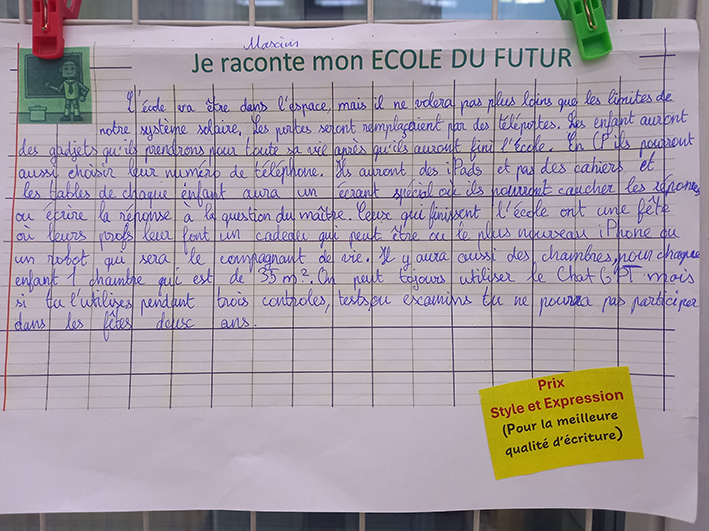 Marcin
Je raconte mon ECOLE DU FUTUR
L'école va être dans l'espace, mais il ne volera pas plus loins que les limites de
notre système solaire. Les portes seront remplaçaient par des téléportes. Les enfant auront
des gadjets qu'ils prendrons pour toute sa vie après qu'ils auront fini l'école. En CP ils pouront
aussi choisir leur numéro de téléphone. Ils auront des iPads et pas des cahiers et
les tables de chaque enfant aura un écrant spécial ou ils pourront caucher les réponses
ou écrire la réponse à la question du maître. Ceux qui finissent l'école ont une fête
où leurs profs leur font un cadeau qui peut être ou le plus nouveau iPhone ou
un robot qui sera le compagnant de vie. Il y aura aussi des chambres, pour chaque
enfant 1 chambre qui est de 35 m². On peut tojours utiliser le Chat GPT mais
si tu l'utilises pendant trois controles, tests, ou examins tu ne pourra pas participer
dans les fêtes deux ans.
Prix
Style et Expression
(Pour la meilleure
qualité d'écriture)